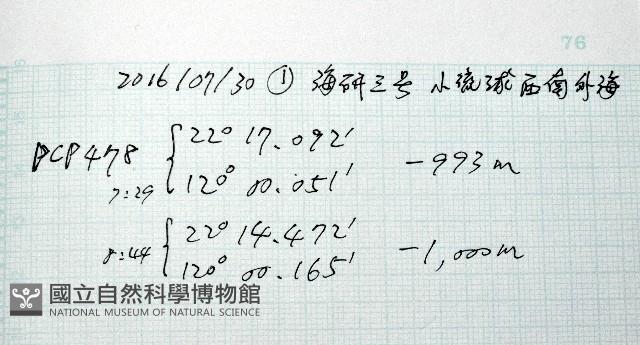 76
2016/07/30 ① 海研三号 小琉球西南外海
PCP478 { 22° 17.092' -993 m
7:29 120° 00.051'
8:44 { 22° 14.472' -1,000m
120° 00.165'
國立自然科學博物館
NATIONAL MUSEUM OF NATURAL SCIENCE